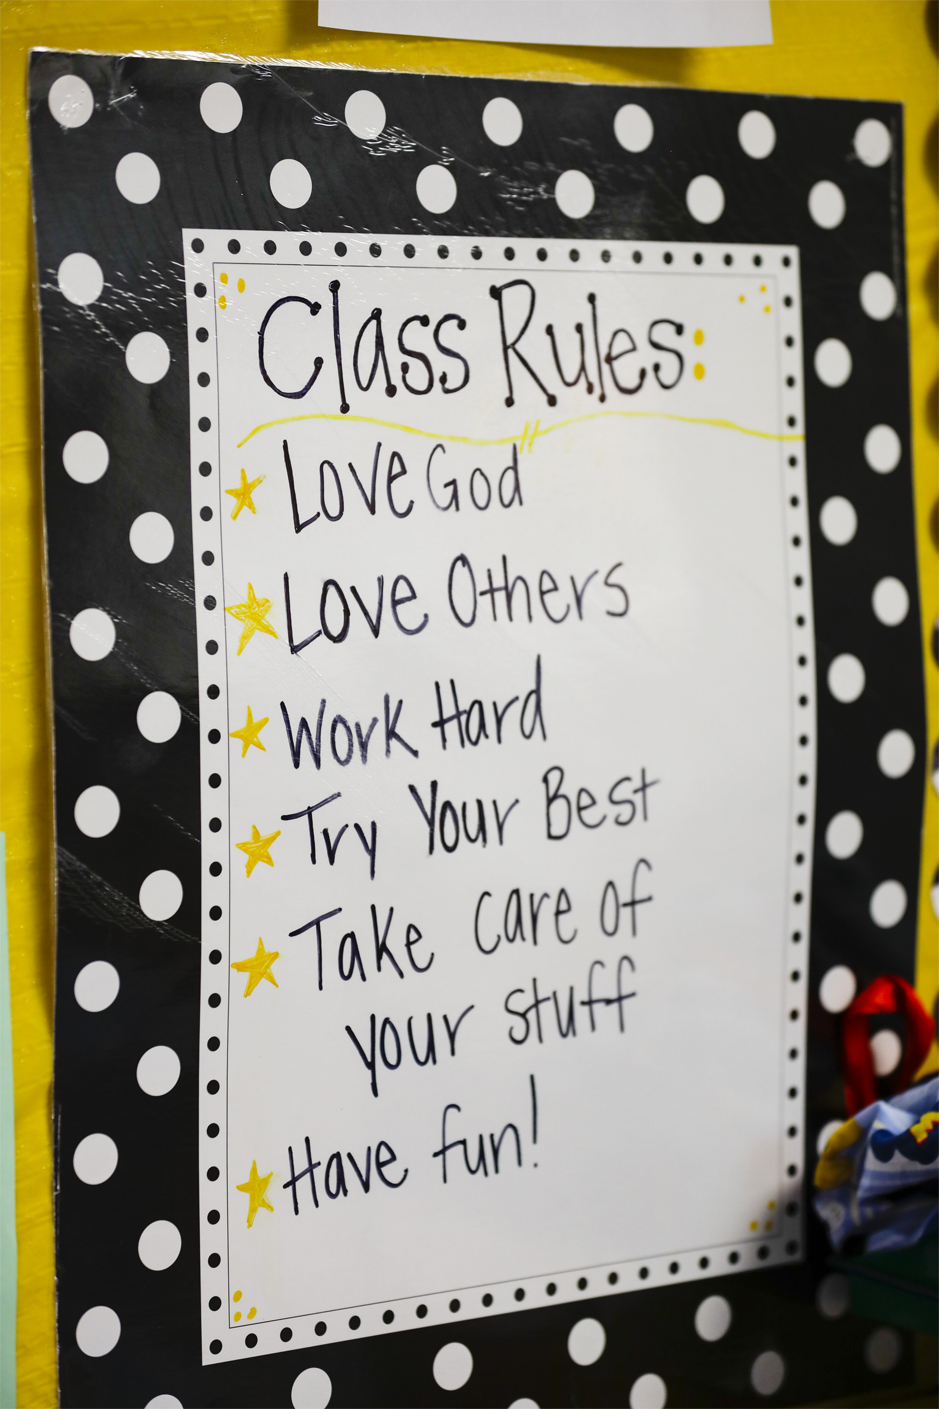 Class Rules:
Love God
Love Others
Work Hard
Try Your Best
Take care of
your stuff
Have fun!